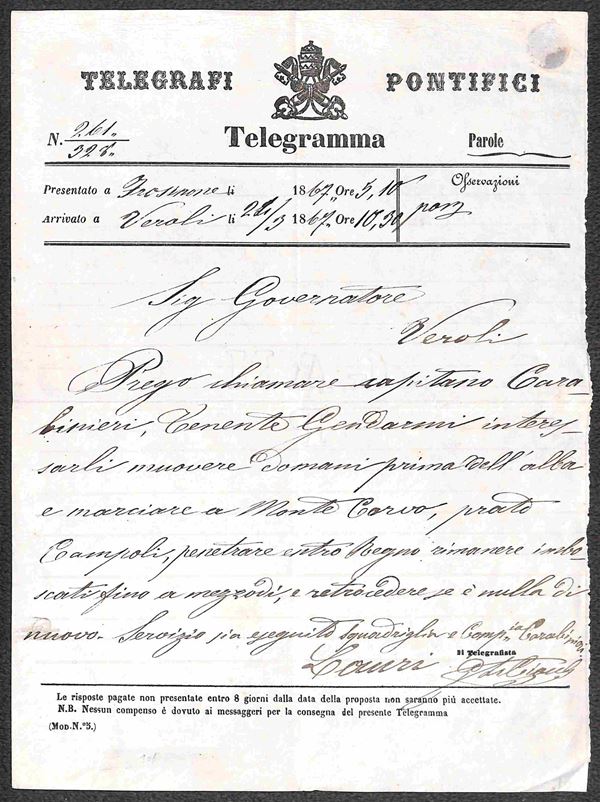 TELEGRAFI PONTIFICI
Telegramma
N. 261.
328.
Parole
Presentato a Frosinone li 1867. Ore 5,10
Osservazioni
Arrivato a Veroli li 22/3 1867. Ore 10,30
Sig Governatore
Veroli
Prego chiamare capitano Cara-
binieri, Tenente Gendarmi interes-
sarli muovere domani prima dell'alba
e marciare a Monte Corvo, prato
Campoli, penetrare entro Regno rimanere imbo-
scati fino a mezzodì, e retrocedere se è nulla di
nuovo. Servizio sia eseguito squadriglia e Comp.ia Carabinieri
Lauri
Il Telegrafista
Le risposte pagate non presentate entro 8 giorni dalla data della proposta non saranno più accettate.
N.B. Nessun compenso è dovuto ai messaggeri per la consegna del presente Telegramma
(MOD. N.º 3.)